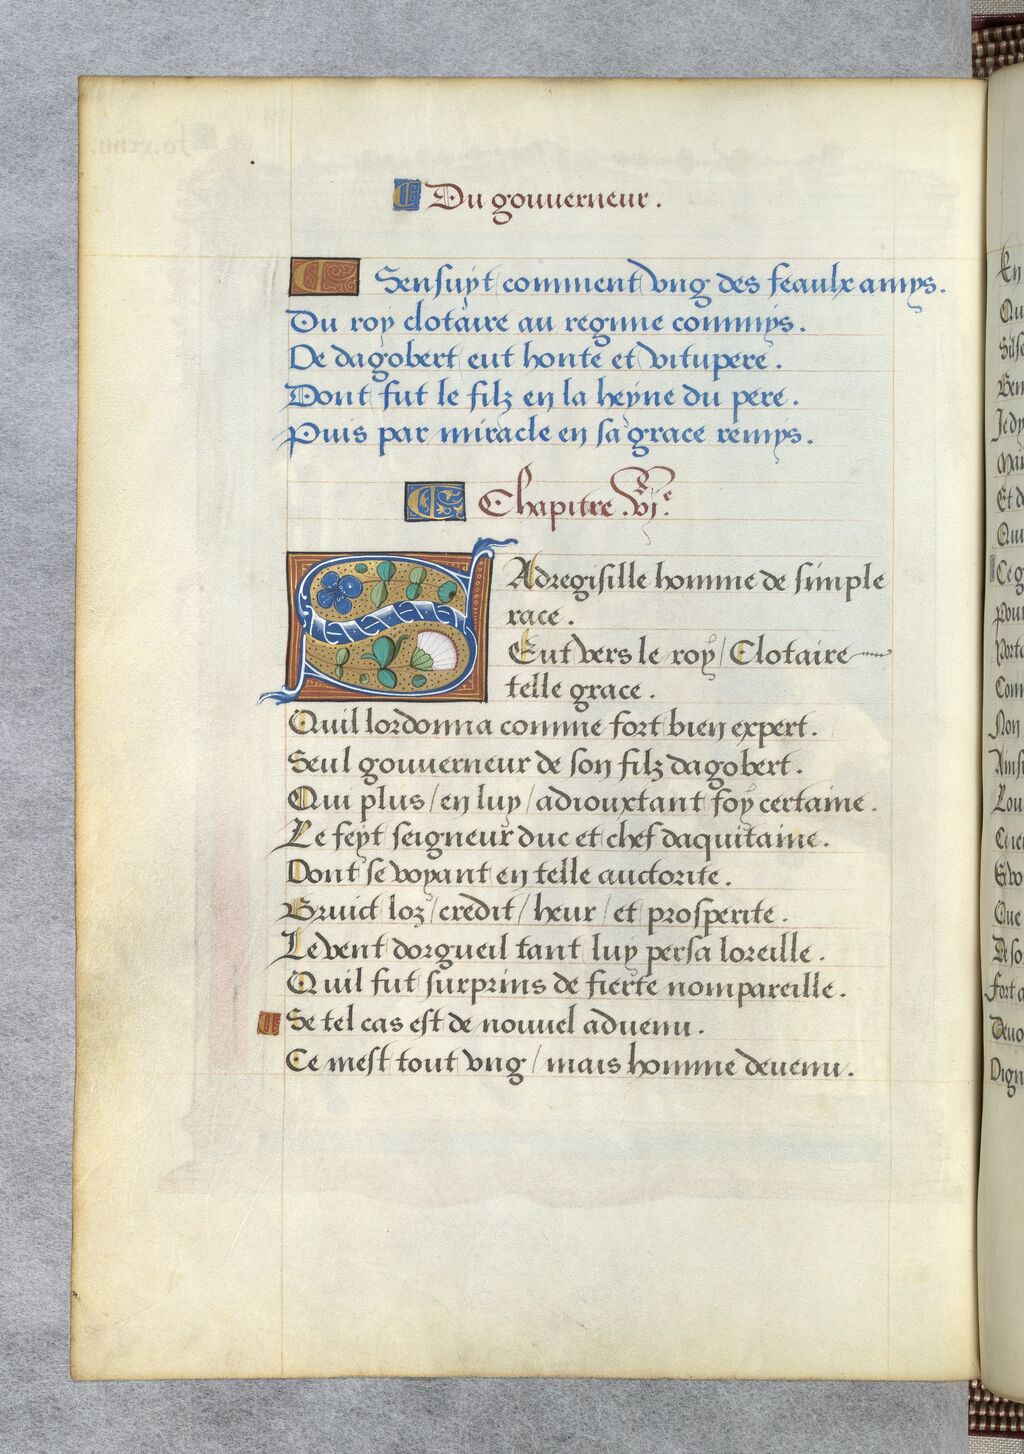 Du gouuerneur.
Sensuyt comment vng des feaulx amys.
Du roy clotaire au regime commys.
De dagobert eut honte et vitupere.
Dont fut le filz en la heyne du pere.
Puis par miracle en sa grace remys.
Chapitre .vj.e
SAdregisille homme de simple
race.
Eut vers le roy / Clotaire
telle grace.
Quil lordonna comme fort bien expert.
Seul gouuerneur de son filz dagobert.
Qui plus / en luy / adiouxtant foy certaine.
Le feyt seigneur duc et chef daquitaine.
Dont se voyant en telle auctorite.
Bruict loz / credit / heur / et prosperite.
Le vent dorgueil tant luy persa loreille.
Quil fut surprins de fierte nompareille.
Se tel cas est de nouuel aduenu.
Ce mest tout vng / mais homme deuenu.